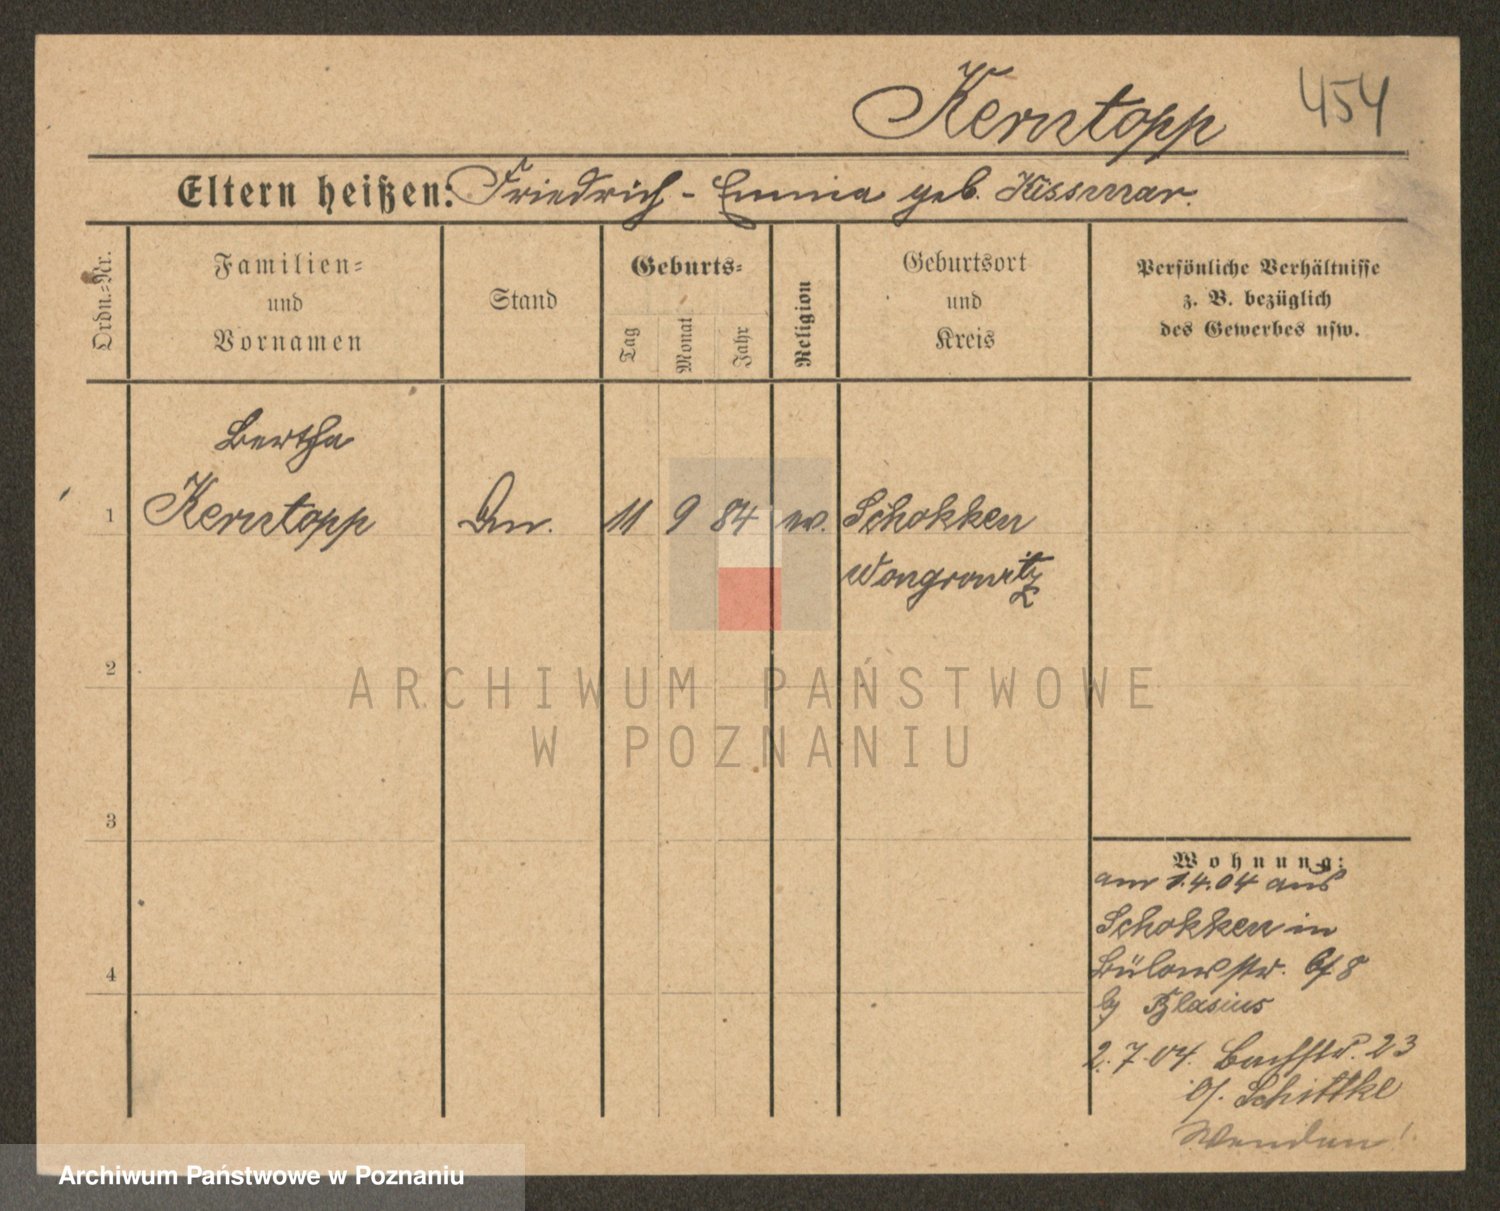 Kerntopp 454
Eltern heißen: Friedrich - Emma geb. Kissmar.
Ordn.-Nr.
Familien-
und
Vornamen
Stand
Geburts-
Tag
Monat
Jahr
Religion
Geburtsort
und
Kreis
Persönliche Verhältnisse
z. B. bezüglich
des Gewerbes usw.
Bertha
1 Kerntopp 11 9 84 Schokken
Wongrowitz
2
ARCHIWUM PAŃSTWOWE
W POZNANIU
3
4
Wohnung:
am 1.4.04 aus
Schokken in
Bülowstr. 8
b/ Blasius
2.7.04. Bachstr. 23
b/. Schittke
Wenden!
Archiwum Państwowe w Poznaniu